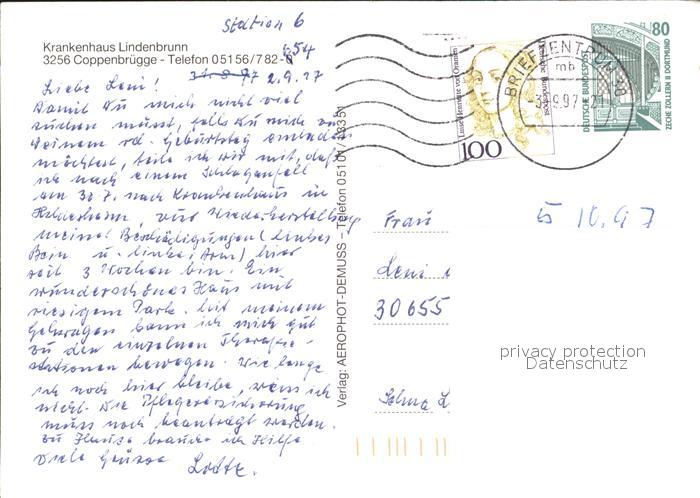 Station 6
Krankenhaus Lindenbrunn
3256 Coppenbrügge - Telefon 05156/782-0
654
31.8.97 2.9.97
Liebe Leni!
Damit Du mich nicht viel
suchen musst, falls Du mich zu
Deinem rd. Geburtstag einladen
möchtest, teile ich Dir mit, daß
ich nach einem Schlaganfall
am 30.7. nach Krankenhaus in
Hildesheim, zur Wiederherstellung
meiner Beschädigungen (linkes
Bein u. linker Arm) hier
seit 3 Wochen bin. Ein
wunderschönes Haus mit
riesigem Park. Mit meinem
Gehwagen kann ich mich gut
zu den einzelnen Therapie-
stationen bewegen. Wie lange
ich noch hier bleibe, weiss ich
nicht. Die Pflegeversicherung
muss noch beantragt werden.
Zu Hause brauche ich Hilfe
Viele Grüsse Lotte.
Verlag: AEROPHOT-DEMUSS - Telefon 05101/
Luise Henriette von Oranien
Deutsche Bundespost
100
BRIEFZENTRUM 30
mb
-3.9.97-21
80
DEUTSCHE BUNDESPOST
ZECHE ZOLLERN II DORTMUND
Frau
5 10.97
Leni
30655
privacy protection
Datenschutz